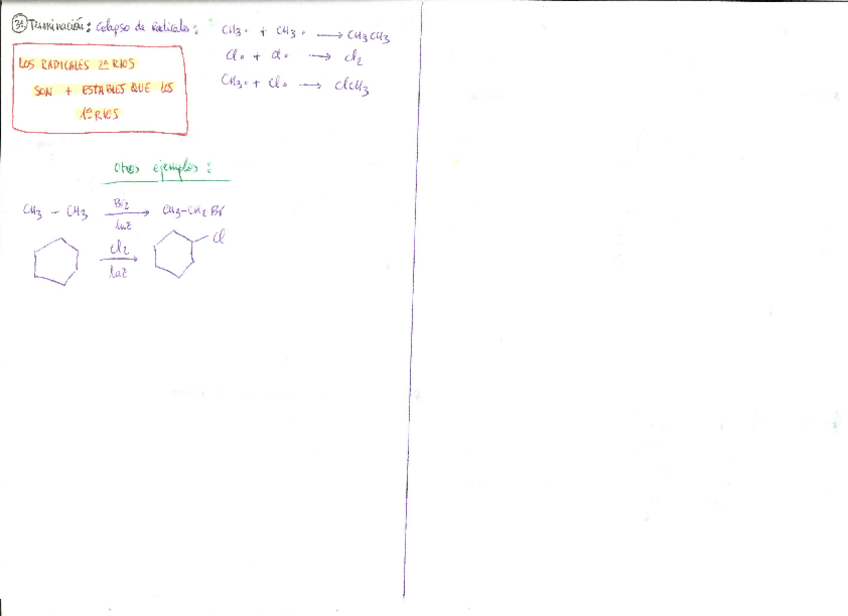 3º) Terminación: Colapso de radicales:
CH3• + CH3• → CH3CH3
Cl• + Cl• → Cl2
CH3• + Cl• → ClCH3
LOS RADICALES 2ºRIOS
SON + ESTABLES QUE LOS
1ºRIOS
Otros ejemplos:
CH3 - CH3 Br2 luz → CH3-CH2 Br
Cl2 luz → Cl